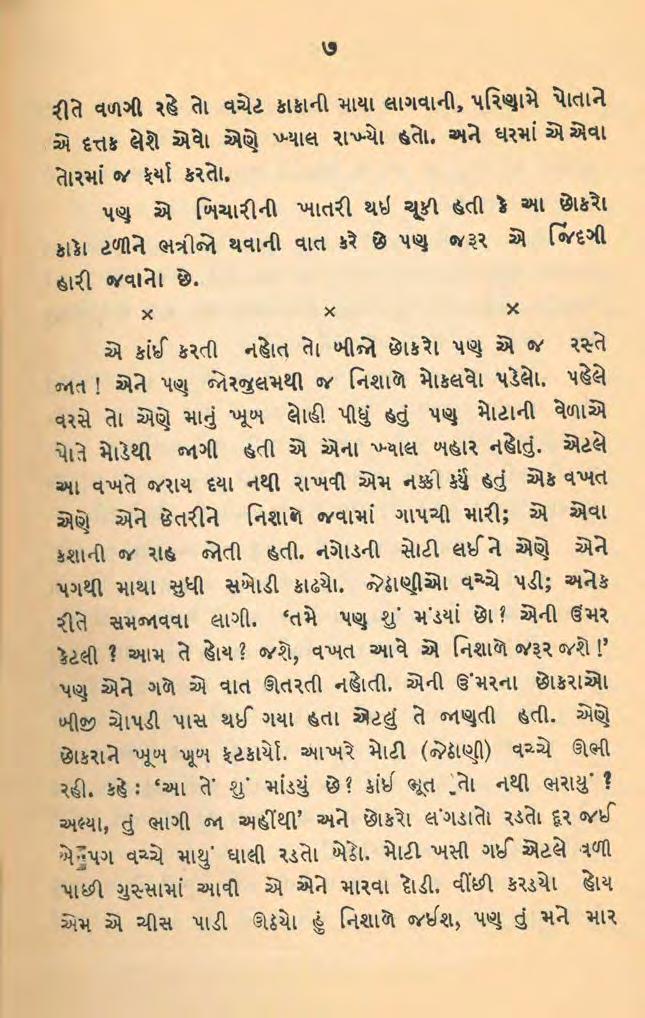 ૭
રીતે વળગી રહે તો વચેટ કાકાની માયા લાગવાની, પરિણામે પોતાને
એ દત્તક લેશે એવો એણે ખ્યાલ રાખ્યો હતો. અને ઘરમાં એ એવા
તોરમાં જ ફર્યા કરતો.
પણ એ બિચારીની ખાતરી થઇ ચૂકી હતી કે આ છોકરો
કાકો ટળીને ભત્રીજો થવાની વાત કરે છે પણ જરૂર એ જિંદગી
હારી જવાનો છે.
× × ×
એ કાંઈ કરતી નહોત તો બીજો છોકરો પણ એ જ રસ્તે
જાત ! એને પણ જોરજુલમથી જ નિશાળે મોકલવો પડેલો. પહેલે
વરસે તો એણે માનું ખૂબ લોહી પીધું હતું પણ મોટાની વેળાએ
પોતે મોડેથી જાગી હતી એ એના ખ્યાલ બહાર નહોતું. એટલે
આ વખતે જરાય દયા નથી રાખવી એમ નક્કી કર્યું હતું એક વખત
એણે એને છેતરીને નિશાળે જવામાં ગાપચી મારી; એ એવા
કશાની જ રાહ જોતી હતી. નગોડની સોટી લઈને એણે એને
પગથી માથા સુધી સબોડી કાઢયો. જેઠાણીઓ વચ્ચે પડી; અનેક
રીતે સમજાવવા લાગી. ‘તમે પણ શું મંડયાં છો ? એની ઉંમર
કેટલી ? આમ તે હોય ? જશે, વખત આવે એ નિશાળે જરૂર જશે !’
પણ એને ગળે એ વાત ઊતરતી નહોતી. એની ઉંમરના છોકરાઓ
બીજી ચોપડી પાસ થઈ ગયા હતા એટલું તે જાણતી હતી. એણે
છોકરાને ખૂબ ખૂબ ફટકાર્યો. આખરે મોટી (જેઠાણી) વચ્ચે ઊભી
રહી. કહે : ‘આ તેં શું માંડયું છે ? કાંઇ ભૂત તો નથી ભરાયું ?
અલ્યા, તું ભાગી જા અહીંથી’ અને છોકરો લંગડાતો રડતો દૂર જઈ
બે પગ વચ્ચે માથું ઘાલી રડતો બેઠો. મોટી ખસી ગઈ એટલે વળી
પાછી ગુસ્સામાં આવી એ એને મારવા દોડી. વીંછી કરડયો હોય
એમ એ ચીસ પાડી ઊઠયો હું નિશાળે જઈશ, પણ તું મને માર